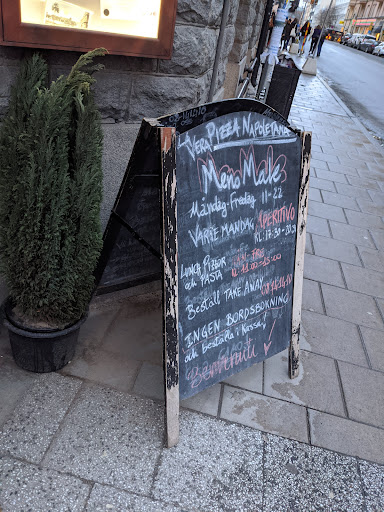 VERA PIZZA NAPOLETANA
Meno Male
Måndag-Fredag 11-22
VARJE MANDAG APERITIVO
KL. 17:30-20:30
LUNCH PIZZOR
och PASTA KL 11:00-15:00
Beställ TAKE AWAY
INGEN BORDSBOKNING
och beställa i Kassan
Benvenuti